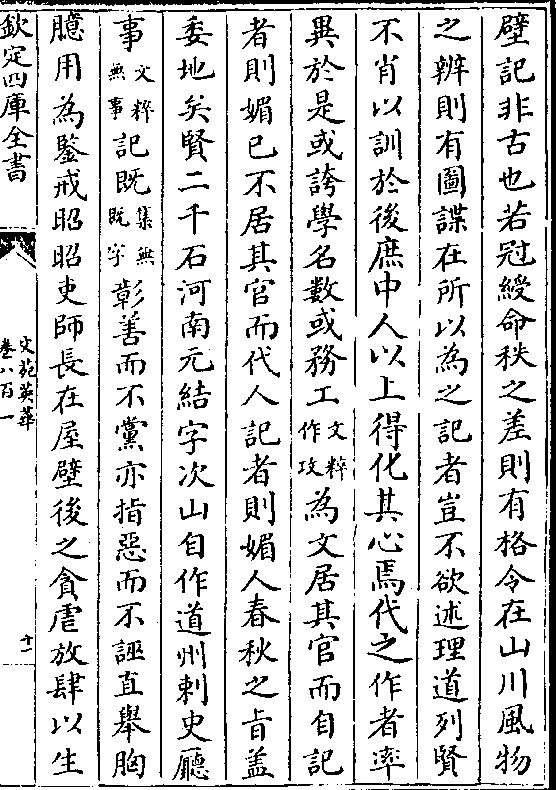 壁記非古也若冠綬命秩之差則有格令在山川風物
之辨則有圖諜在所以為之記者豈不欲述理道列賢
不肖以訓於後庶中人以上得化其心焉代之作者率
異於是或誇學名數或務工文粹作攻為文居其官而自記
者則媚已不居其官而代人記者則媚人春秋之旨盖
委地矣賢二千石河南元結字次山自作道州刺史廳
事文粹無事記既集無既字彰善而不黨亦指惡而不誣直舉胸
臆用為鑒戒昭昭吏師長在屋壁後之貪虐放肆以生
欽定四庫全書
文苑英華
卷八百一
十一